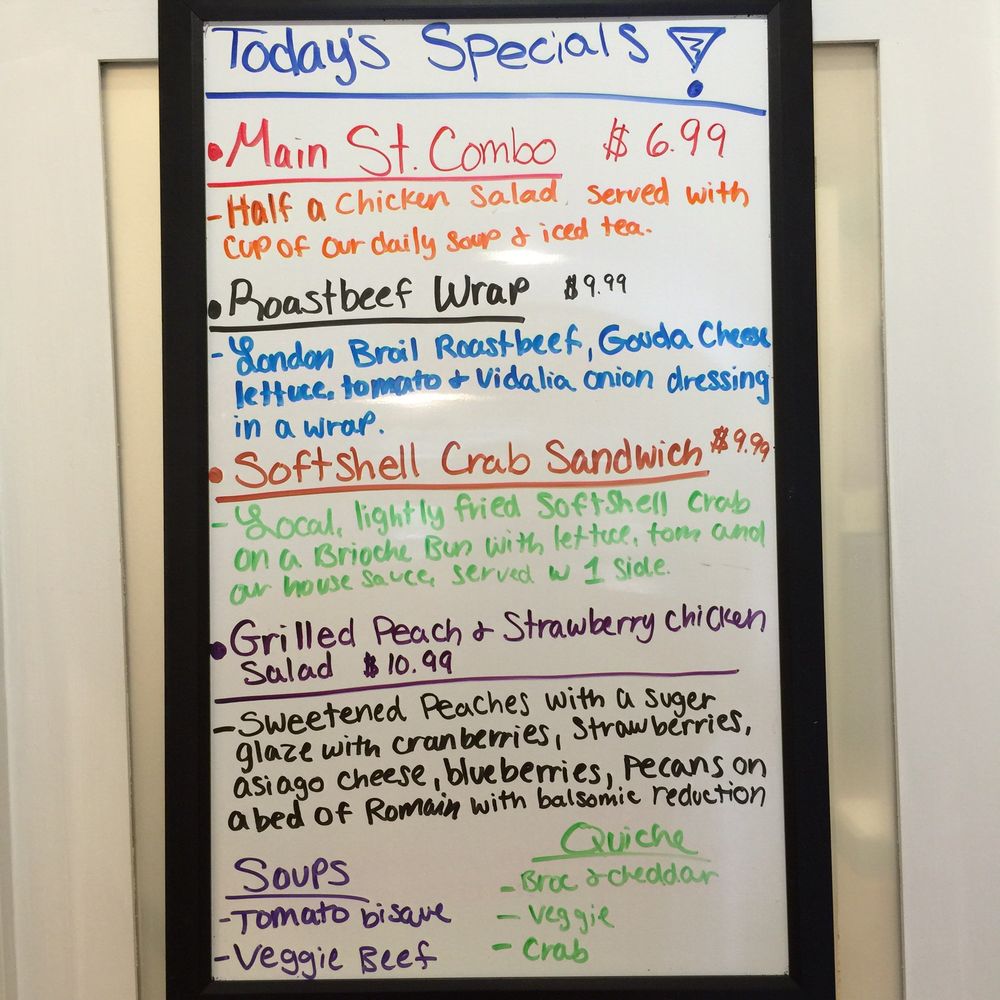 Today's Specials !
• Main St. Combo $6.99
- Half a Chicken Salad served with
cup of our daily soup & iced tea.
• Roastbeef Wrap $9.99
- London Broil Roastbeef, Gouda Cheese
lettuce, tomato & Vidalia onion dressing
in a wrap.
• Softshell Crab Sandwich $9.99
- Local, lightly fried Softshell Crab
on a Brioche Bun with lettuce, tom and
our house sauce, served w 1 side.
• Grilled Peach & Strawberry chicken
Salad $10.99
- Sweetened Peaches with a suger
glaze with cranberries, Strawberries,
asiago cheese, blueberries, Pecans on
a bed of Romain with balsomic reduction
Soups
- Tomato bisque
- Veggie Beef
Quiche
- Broc & cheddar
- Veggie
- Crab